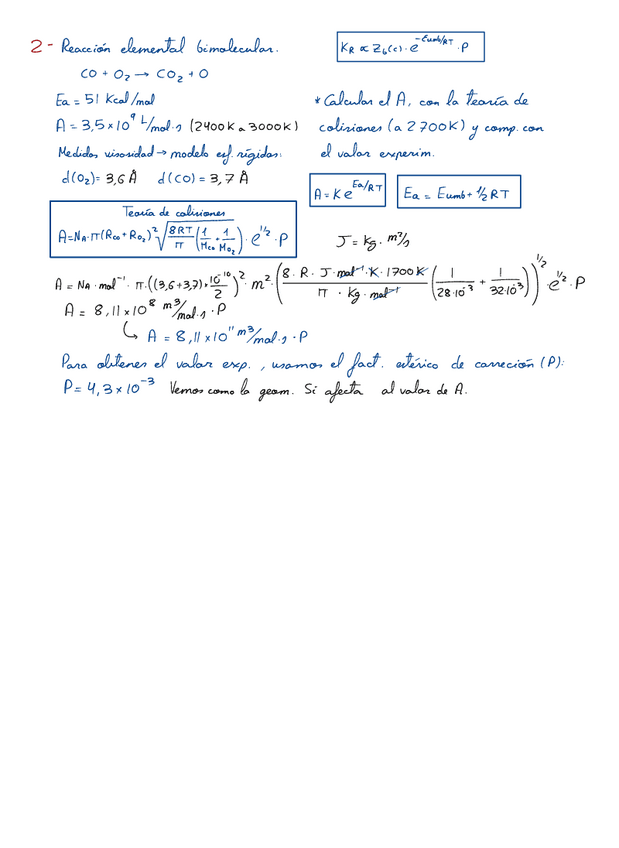 2- Reacción elemental bimolecular.
K_R ∝ Z_b(c) · e^(-Eumb/RT) · P
CO + O₂ → CO₂ + O
Ea = 51 Kcal/mol
A = 3,5×10⁹ L/mol·s (2400K a 3000K)
Medidas viscosidad → modelo esf. rígidas:
d(O₂)= 3,6 Å d(CO) = 3,7 Å
* Calcular el A, con la teoría de
colisiones (a 2700K) y comp. con
el valor experim.
A = K e^(Ea/RT)
Ea = Eumb + ½ RT
Teoría de colisiones
A=N_A·π(R_CO + R_O₂)² √(8RT/π (1/M_CO + 1/M_O₂)) · e^(1/2) · P
J = kg · m²/s
A = N_A · mol⁻¹ · π · ((3,6+3,7)·10⁻¹⁰/2)² · m² · (8 · R · J · mol⁻¹ · K · 1700 K / π · Kg · mol⁻¹ (1/28·10⁻³ + 1/32·10⁻³))^(1/2) · e^(1/2) · P
A = 8,11×10⁸ m³/mol·s · P
↳ A = 8,11×10¹¹ m³/mol·s · P
Para obtener el valor exp., usamos el fact. estérico de corrección (P):
P = 4,3×10⁻³ Vemos como la geom. Si afecta al valor de A.